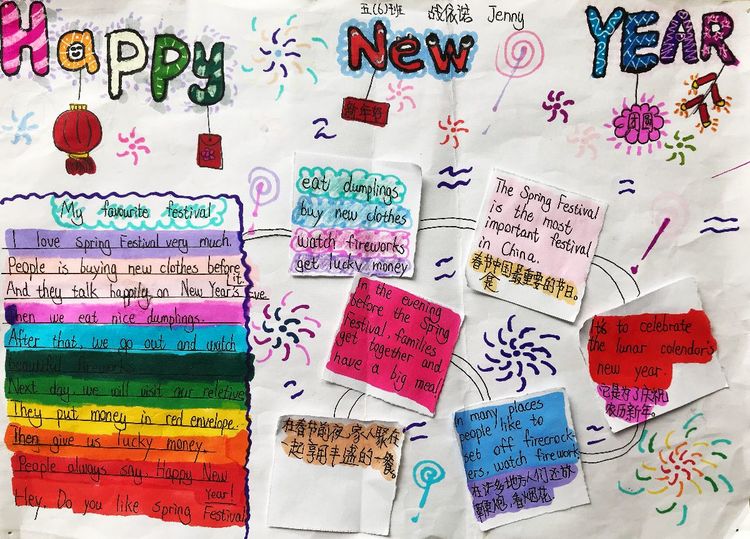 五(6)班 战依诺 Jenny
Happy New YEAR
新年好
团圆
My favourite festival
I love Spring Festival very much.
People is buying new clothes before
it.
And they talk happily on New Year's eve.
then we eat nice dumplings.
After that, we go out and watch
beautiful fireworks.
Next day, we will visit our reletive
They put money in red envelope.
then give us lucky money.
People always say Happy New
Year!
Hey. Do you like Spring Festival
eat dumplings
buy new clothes
watch fireworks
get lucky money
The Spring Festival
is the most
important festival
in China.
春节中国最重要的节日。
In the evening
before the Spring
Festival, families
get together and
have a big meal
It's to celebrate
the lunar calendar's
new year.
它是为了庆祝
农历新年。
在春节前夜,家人聚在
一起享用丰盛的一餐
In many places
people like to
set off firecrock-
ers, watch firework
在许多地方人们还放
鞭炮,看烟花。